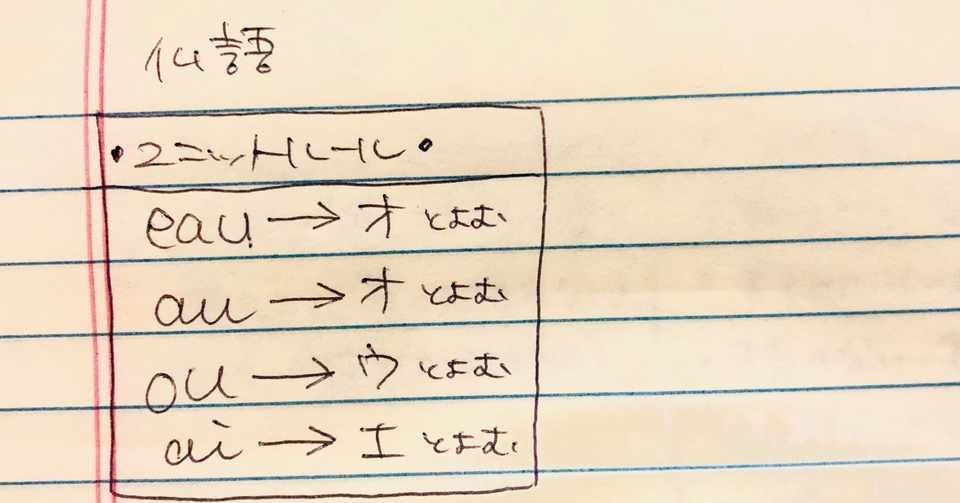 仏語
•ユニットルール•
eau → オ とよむ
au → オ とよむ
ou → ウ とよむ
ai → エ とよむ